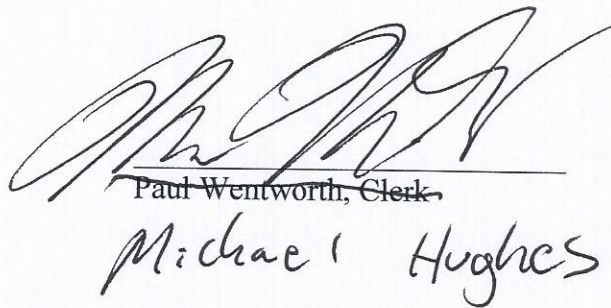 Paul Wentworth, Clerk
Michael Hughes